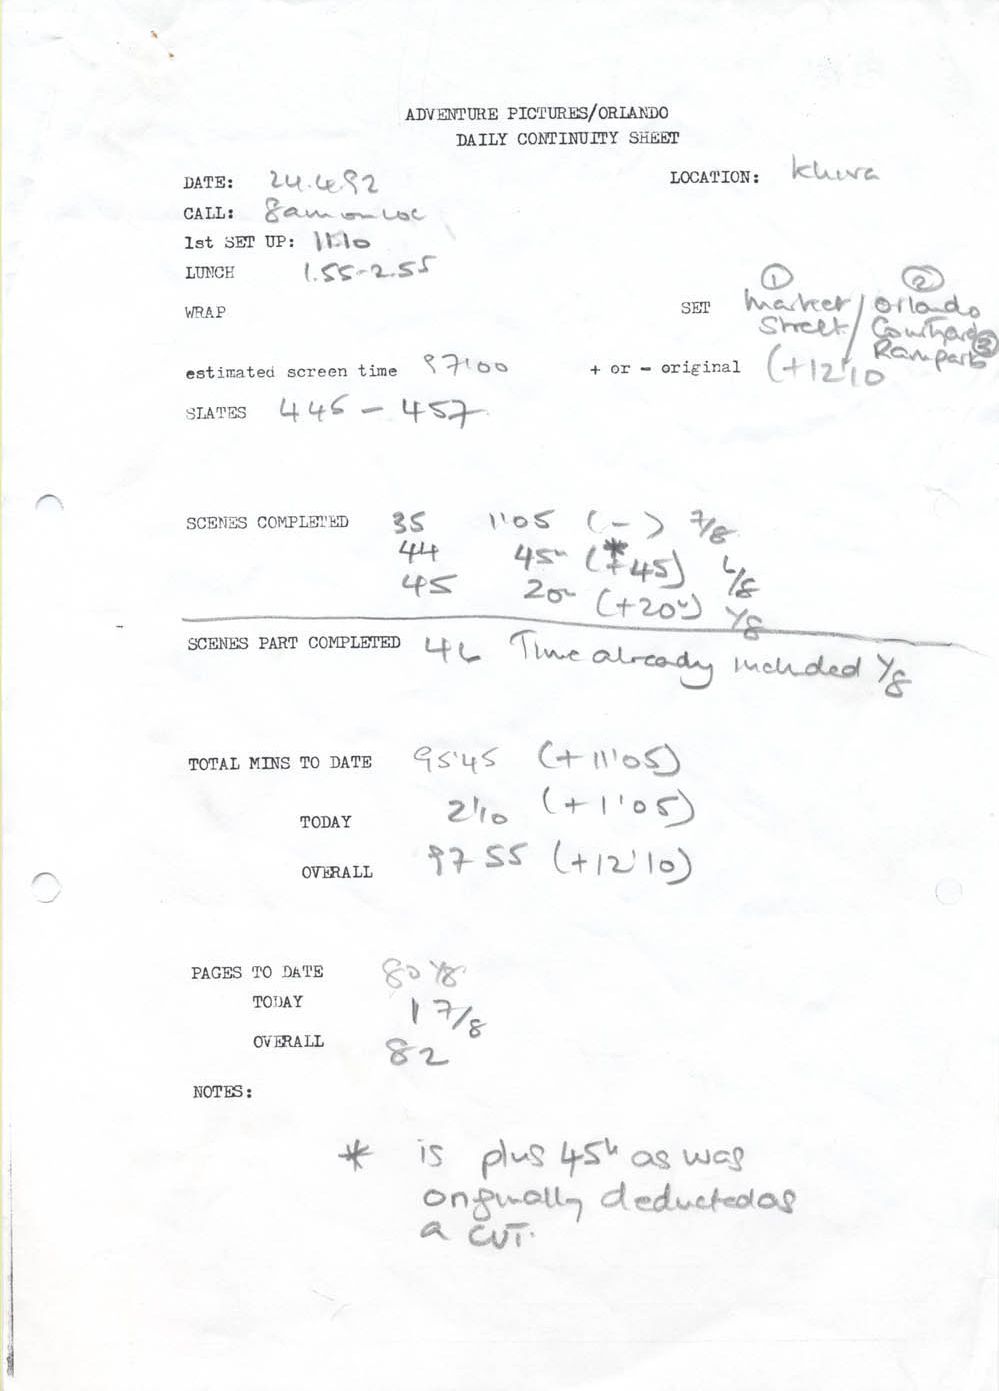 ADVENTURE PICTURES/ORLANDO
DAILY CONTINUITY SHEET
DATE: 24.4.92
LOCATION: Khiva
CALL: 8am on Loc
1st SET UP: 11.10
LUNCH 1.55-2.55
WRAP
SET ① Market Street / ② Orlando Courtyard ③ Ramparts
estimated screen time 97'00 + or - original (+12'10
SLATES 446 - 457
SCENES COMPLETED 35 1'05 (-) 7/8
44 45" (*+45) 6/8
45 20" (+20") 1/8
SCENES PART COMPLETED 46 Time already included 1/8
TOTAL MINS TO DATE 95'45 (+11'05)
TODAY 2'10 (+1'05)
OVERALL 97 55 (+12'10)
PAGES TO DATE 80 1/8
TODAY 1 7/8
OVERALL 82
NOTES:
* is plus 45" as was
originally deducted as
a CUT.